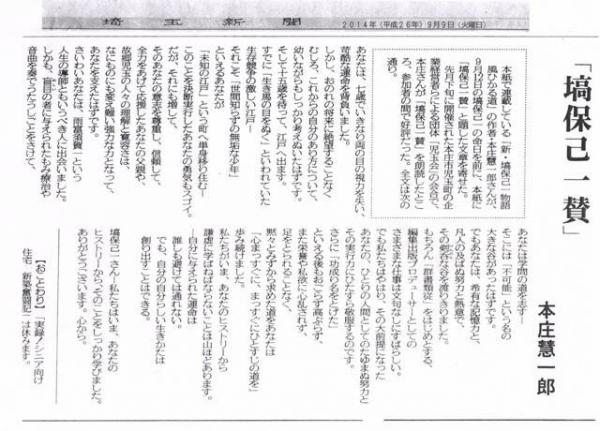 埼玉新聞
2014年(平成26年)9月9日(火曜日)
「塙保己一賛」
本庄慧一郎
本紙で連載している「新・塙保己一物語
風ひかる道」の作者・本庄慧一郎さんが、
9月12日の塙保己一の命日を前に、本紙に
「塙保己一賛」と題した文章を寄せた。
先月下旬に開催された本庄市児玉町の
業経営者らによる団体「児玉会」の会合で、
本庄さんが「塙保己一賛」を朗読したとこ
ろ、参加者の間で好評だった。全文は次の
通り。
あなたは、七歳でいきなり両の目の視力を失い、
苛酷な運命を背負いました。
しかし、おのれの将来に絶望することなく
むしろ、これからの自分のあり方について、
幼いながらもしっかり考えぬいたはずです。
そして十五歳を待って、江戸へ出ます。
すでに「生き馬の目をぬく」といわれていた
生存競争の激しい江戸—
それこそ「世間知らずの無垢な少年」
といえるあなたが
「未知の江戸」という町へ単身移り住む—
このことを決断実行したあなたの勇気もスゴイ。
だが、それにも増して、
そのあなたの意志を尊重し、信頼して、
全力をあげて応援したあなたの父親や、
故郷児玉の人々の理解と寛容さは、
なにものにも変え難い強力な力となって、
あなたを支えたはずです。
さいわいあなたは、雨富須賀一という
人生の導師ともいうべき人に出会いました。
しかも、盲目の者に与えられたもみ療治や
音曲を奏でうたうしごとをさけて、
あなたは学問の道をめざす—
そこには「不可能」という名の
大きな谷があったはずです。
でもあなたは、希有な記憶力と、
凡人の及ばぬ努力と熱意で、
その峻谷な谷を渡りきりました。
もちろん「群書類従」をはじめとする、
編集出版プロデューサーとしての
さまざまな仕事は文句なしにすばらしい。
でも私たちはやはり、その大前提になった
あなたの、ひとりの人間としてのたゆまぬ努力と
その実行力にひたすら敬服するのです。
さらに「功成り名をとげた」
といえる後もおごらず高ぶらず、
また栄誉や私欲に心乱されず、
足をとられることなく、
黙々とみずから求めた道をあなたは
「心まっすぐに、まっすぐにひとすじの道を」
歩み続けました。
私たちがいま、あなたのヒストリーから
謙虚に学ばねばならないことは山ほどあります。
—自分に与えられた運命は
誰しも避けては通れない。
でも、自分の自分らしい生きかたは
創り出すことはできる。
塙保己一さん—私たちはいま、あなたの
ヒストリーから、そのことをしっかり学びました。
ありがとうございます。心から。
【おことわり】「実録!シニア向け
住宅 新築奮闘記」は休みます。